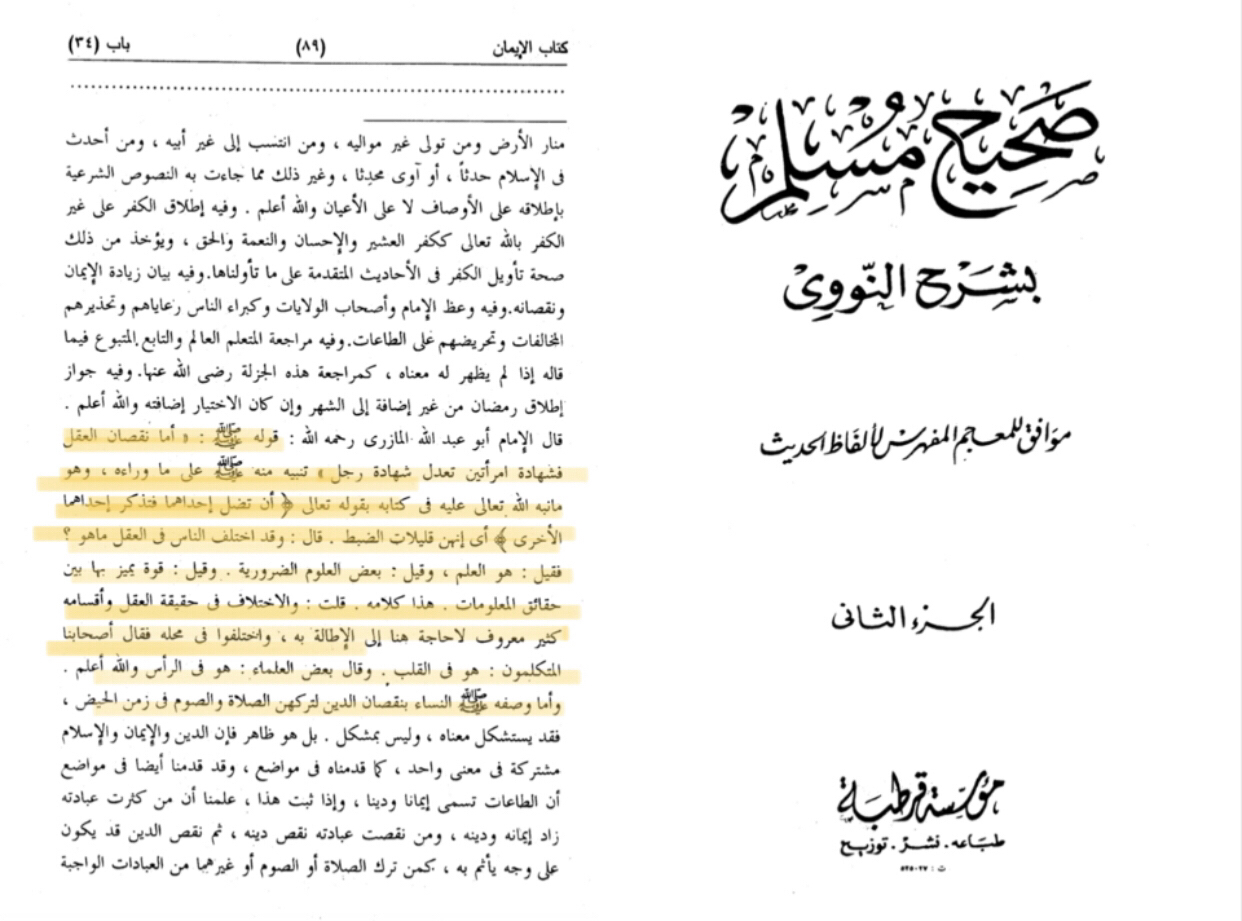 كتاب الإيمان (٨٩) باب (٣٤)
منار الأرض ومن تولى غير مواليه ، ومن انتسب إلى غير أبيه ، ومن أحدث
فى الإسلام حدثاً ، أو آوى محدِثا ، وغير ذلك مما جاءت به النصوص الشرعية
بإطلاقه على الأوصاف لا على الأعيان والله أعلم . وفيه إطلاق الكفر على غير
الكفر بالله تعالى ككفر العشير والإحسان والنعمة والحق ، ويؤخذ من ذلك
صحة تأويل الكفر فى الأحاديث المتقدمة على ما تأولناها.وفيه بيان زيادة الإيمان
ونقصانه.وفيه وعظ الإمام وأصحاب الولايات وكبراء الناس رعاياهم وتحذيرهم
المخالفات وتحريضهم على الطاعات.وفيه مراجعة المتعلم العالم والتابع المتبوع فيما
قاله إذا لم يظهر له معناه ، كمراجعة هذه الجزلة رضى الله عنها.وفيه جواز
إطلاق رمضان من غير إضافة إلى الشهر وإن كان الاختيار إضافته والله أعلم .
قال الإمام أبو عبد الله المازرى رحمه الله : قوله ﷺ : « أما نقصان العقل
فشهادة امرأتين تعدل شهادة رجل » تنبيه منه ﷺ على ما وراءه ، وهو
مانبه الله تعالى عليه فى كتابه بقوله تعالى ﴿ أن تضل إحداهما فتذكر إحداهما
الأخرى ﴾ أى إنهن قليلات الضبط . قال : وقد اختلف الناس فى العقل ماهو ؟
فقيل : هو العلم ، وقيل : بعض العلوم الضرورية . وقيل : قوة يميز بها بين
حقائق المعلومات . هذا كلامه . قلت : والاختلاف فى حقيقة العقل وأقسامه
كثير معروف لاحاجة هنا إلى الإطالة به ، واختلفوا فى محله فقال أصحابنا
المتكلمون : هو فى القلب . وقال بعض العلماء : هو فى الرأس والله أعلم .
وأما وصفه ﷺ النساء بنقصان الدين لتركهن الصلاة والصوم فى زمن الحيض ،
فقد يستشكل معناه ، وليس بمشكل . بل هو ظاهر فإن الدين والإيمان والإسلام
مشتركة فى معنى واحد ، كما قدمناه فى مواضع ، وقد قدمنا أيضا فى مواضع
أن الطاعات تسمى إيمانا ودينا ، وإذا ثبت هذا ، علمنا أن من كثرت عبادته
زاد إيمانه ودينه ، ومن نقصت عبادته نقص دينه ، ثم نقص الدين قد يكون
على وجه يأثم به ، كمن ترك الصلاة أو الصوم أو غيرهما من العبادات الواجبة
صَحِيحُ مُسْلِمٍ
بشَرْح النَّووِى
مُوَافق للمعجم المفهرس لألفاظ الحديث
الجزء الثانى
مؤسّسة قرطبَة
طبَاعه . نشرْ . توزيع